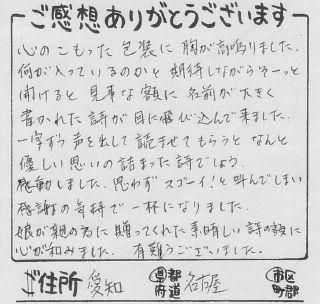 ご感想ありがとうございます
心のこもった包装に胸が高鳴りました。
何が入っているのかと期待しながらそーっと
開けると見事な額に名前が大きく
書かれた詩が目に飛び込んで来ました。
一字ずつ声を出して読ませてもらうとなんと
優しい思いの詰まった詩でしょう。
感動しました。思わずスゴーイ!と叫んでしまい
感謝の気持で一杯になりました。
娘が親の為に贈ってくれた素晴しい詩の額に
心が和みました。有難うございました。
ご住所 愛知 都道府県 名古屋 市区町郡